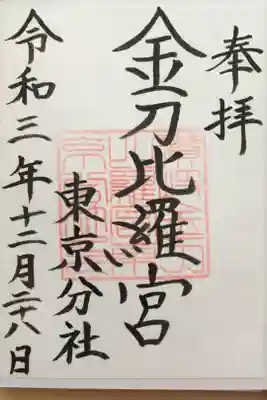 奉拝
金刀比羅宮
東京分社
令和三年十二月二十八日